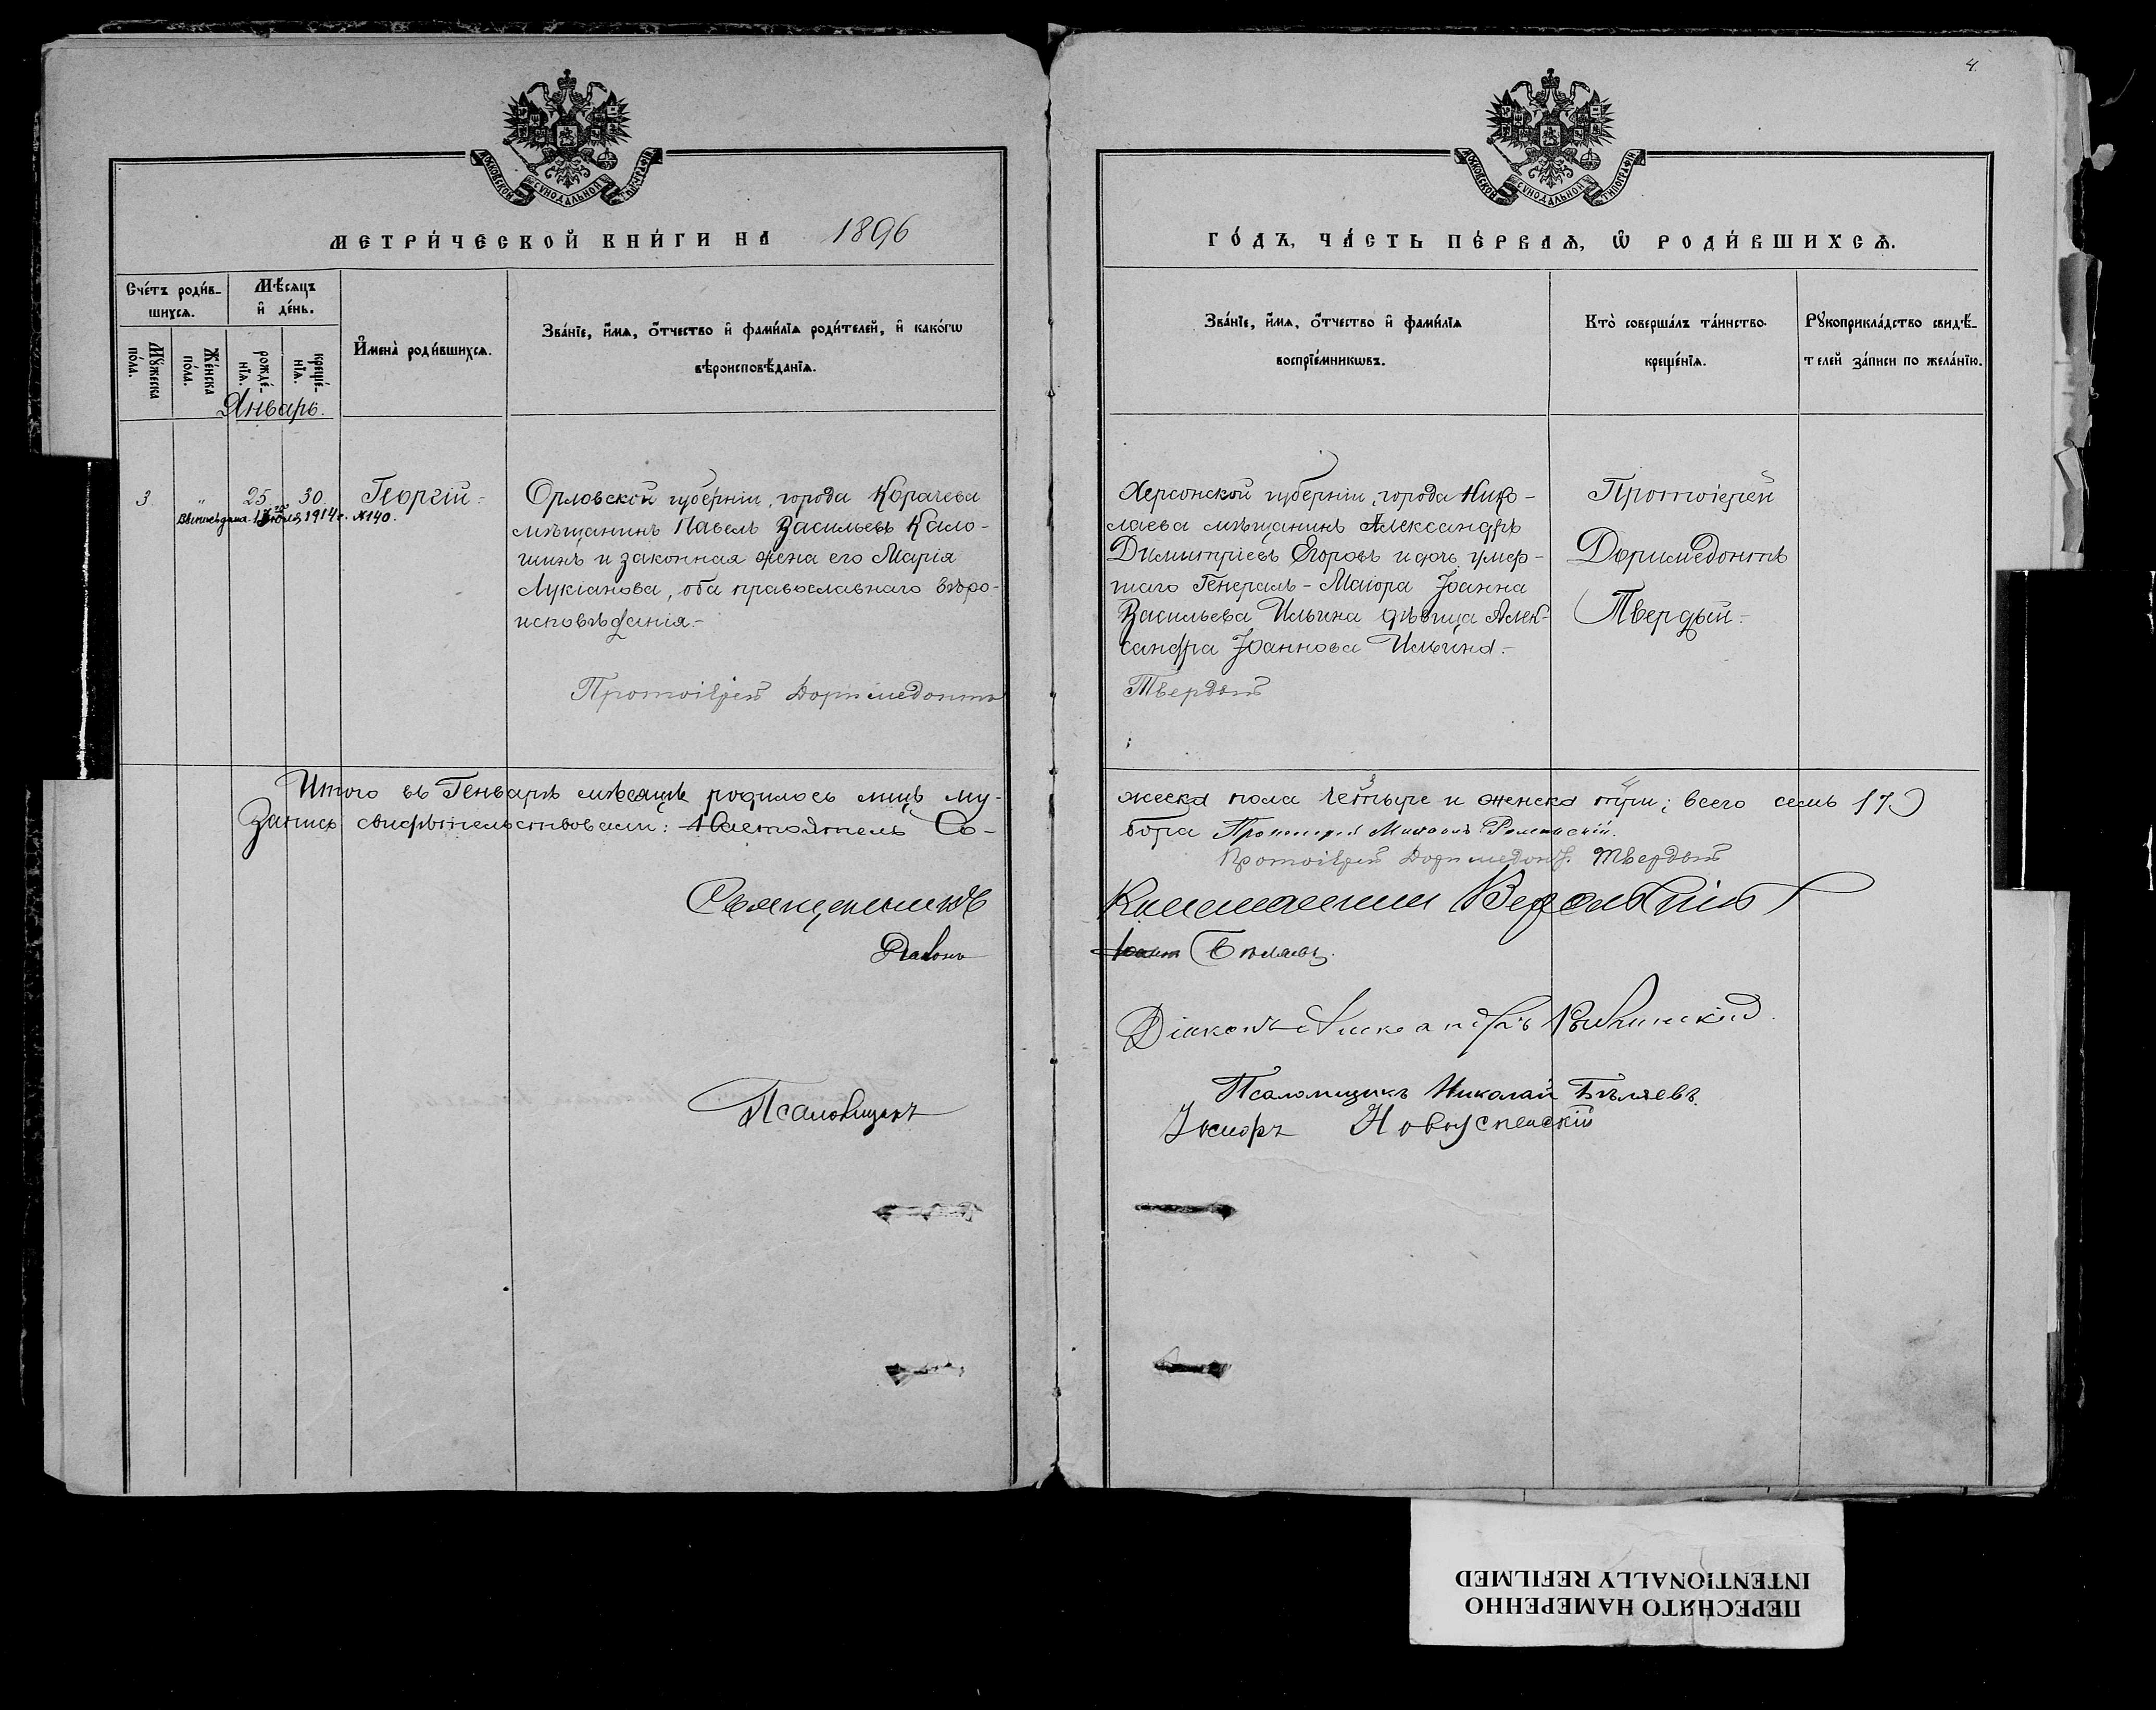 4.
МОСКОВСКОЙ СѴНОДАЛЬНОЙ ТИПОГРАФІИ
МОСКОВСКОЙ СѴНОДАЛЬНОЙ ТИПОГРАФІИ
МЕТРИ́ЧЕСКОЙ КНИ́ГИ НА 1896
ГО́ДЪ, ЧА́СТЬ ПЕ́РВАѦ, Ѽ РОДИ́ВШИХСѦ.
Сче́тъ роди́в-
шихсѧ.
Мѣ́сѧцъ
и҆ де́нь.
Мꙋ́жеска по́ла.
Же́нска по́ла.
рожде́-
нїѧ.
креще́-
нїѧ.
И҆мена̀ роди́вшихсѧ.
Зва́нїе, и҆́мѧ, ѻ҆́тчество и҆ фами́лїѧ роди́телей, и҆ како́гѡ
вѣроисповѣ́данїѧ.
Зва́нїе, и҆́мѧ, ѻ҆́тчество и҆ фами́лїѧ
воспрїе́мникѡвъ.
Кто̀ соверша́лъ та́инство
креще́нїѧ.
Рꙋкоприкла́дство свидѣ́-
телей за́писи по жела́нїю.
Январь.
3 " 25 30. Георгій
1914 г. №140.
Орловской губерніи, города Карачева
мѣщанинъ Павелъ Васильевъ Кало-
шинъ и законная жена его Марія
Лукіанова, оба православнаго вѣро-
исповѣданія.-
Протоіерей Доримедонтъ
Херсонской губерніи, города Нико-
лаева мѣщанинъ Александръ
Димитріевъ Егоровъ и дочь умер-
шаго Генералъ-Маіора Іоанна
Васильева Ильина дѣвица Алек-
сандра Іоаннова Ильина.-
Твердый
Протоіерей
Доримедонтъ
Твердый.-
Итого въ Генварѣ мѣсяцѣ родилось лицъ му-
жеска пола четыре и женска три; всего семь (7)
Запись свидѣтельствовали: Настоятель Со-
бора Протоіерей Михаилъ
Протоіерей Доримедонтъ Твердый
Священникъ
Діаконъ
Бѣляевъ.
Діаконъ Александръ
Псаломщикъ
Псаломщикъ Николай Бѣляевъ.
Новоуспенскій
ПЕРЕСНЯТО НАМЕРЕННО
INTENTIONALLY REFILMED